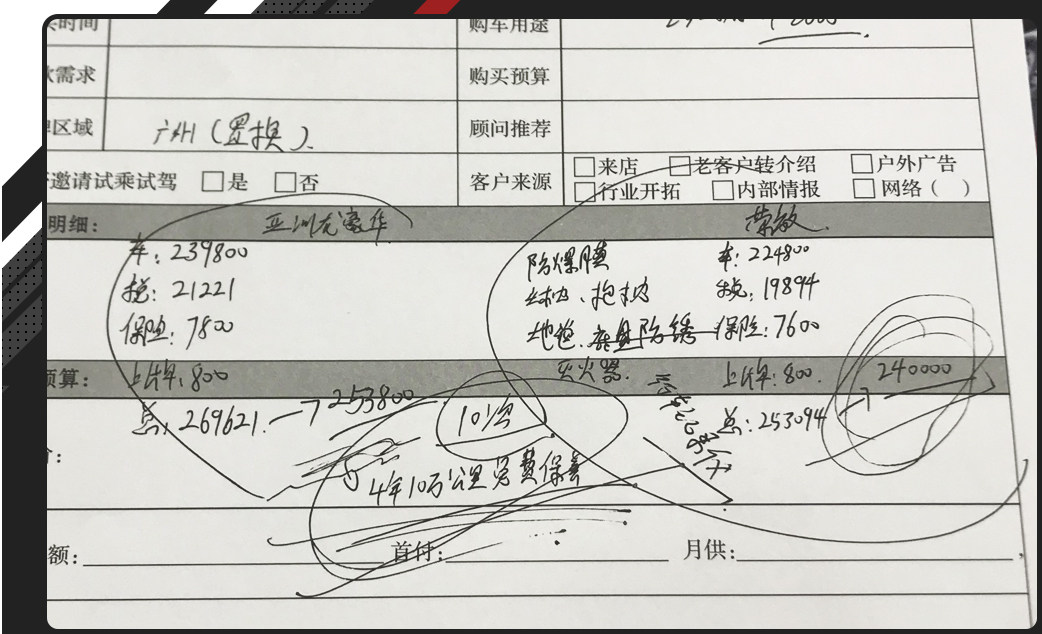 时间 购车用途
需求 购买预算
区域 广州(置换). 顾问推荐
邀请试乘试驾 □是 □否 客户来源 □来店 □老客户转介绍 □户外广告
□行业开拓 □内部情报 □网络( )
明细: 亚洲龙豪华 荣放
车: 239800 防爆膜 车: 224800
税: 21221 税: 19894
保险: 7800 地毯. 底盘防锈 保险: 7600
预算: 上牌: 800 灭火器. 上牌: 800. 240000
总: 269621. → 253800 10次 总: 253094 →
4年10万公里免费保养
额: 首付: 月供: